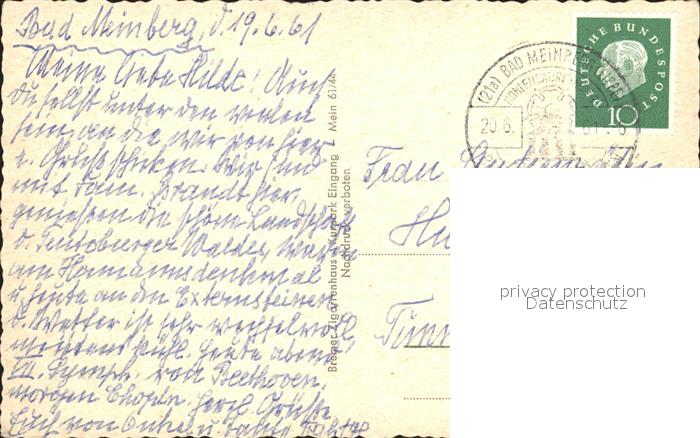 Bad Meinberg, d. 19.6.61
Meine liebe Hilde! Auch
Du sollst unter den vielen
sein, an die wir von hier
e. Gruß schicken. Wir sind
mit Fam. Brandt hier
genießen die schöne Landschaft
d. Teutoburger Waldes, waren
am Hermannsdenkmal
u. heute an den Externsteinen
d. Wetter ist sehr wechselvoll
meistens kühl. Heute abend
VII. Symph. von Beethoven,
morgen Chopin. Herzl. Grüße
Euch von Onkel u. Tante
Bremer Zigarrenhaus - Kurpark Eingang Mein 61/44
Nachdruck verboten
(21a) BAD MEINBERG (LIPPE)
20.6. 61
DEUTSCHE BUNDESPOST
10
Frau
Hu
privacy protection
Datenschutz